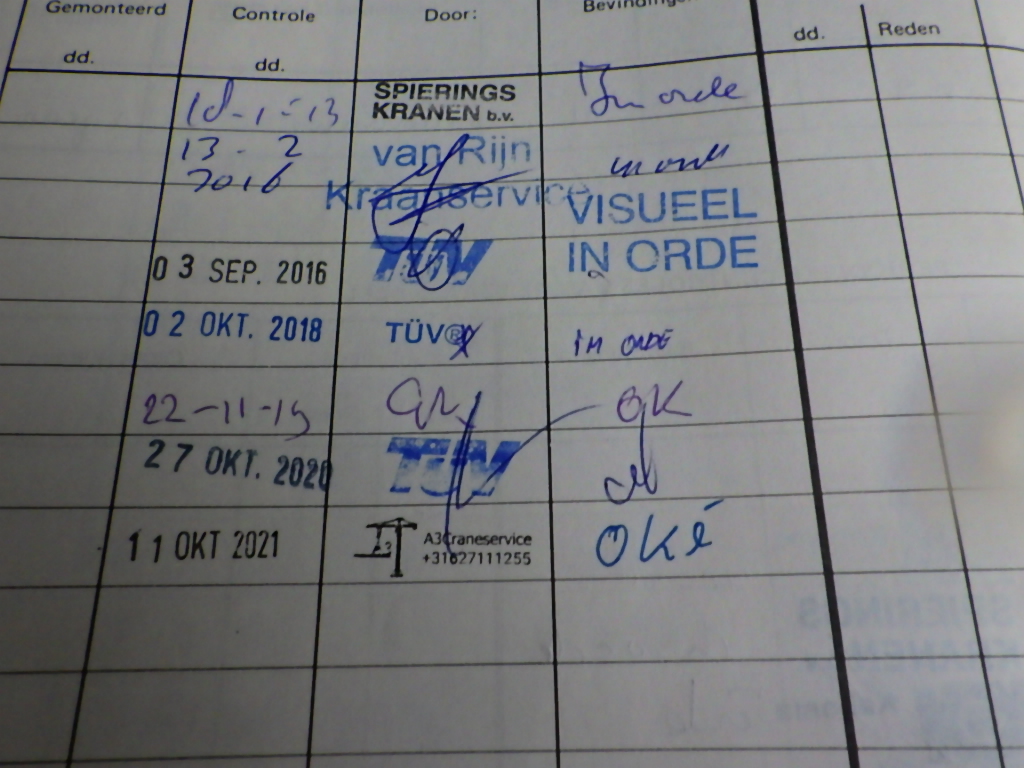 Gemonteerd Controle Door: Bevindingen
dd. dd. dd. Reden
18-1-13 SPIERINGS KRANEN b.v. In orde
13-2 2016 van Rijn Kraanservice in orde
03 SEP. 2016 TÜV VISUEEL IN ORDE
02 OKT. 2018 TÜV® in ORDE
22-11-19 OK
27 OKT. 2020 TÜV
11 OKT 2021 A3 A3Craneservice +31627111255 OKé
SPIERINGS
KRANEN